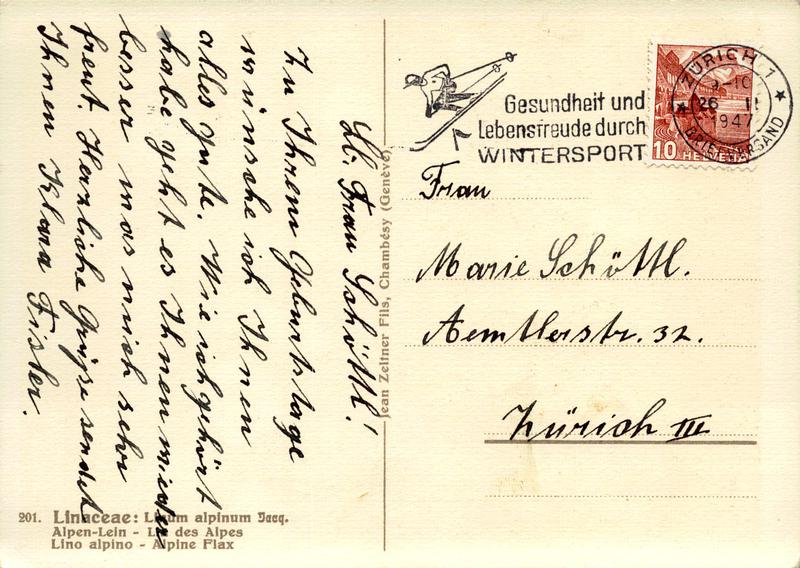 Lb. Frau Schöttl!
Zu Ihrem Geburtstage
wünsche ich Ihnen
alles gute. Wie ich gehört
habe geht es Ihnen wieder
besser was mich sehr
freut. Herzliche Grüsse sendet
Ihnen Klara Fisler.
201. Linaceae: Linum alpinum Jacq.
Alpen-Lein - Lin des Alpes
Lino alpino - Alpine Flax
Jean Zeltner Fils, Chambésy (Genève)
Gesundheit und
Lebensfreude durch
WINTERSPORT
ZÜRICH 1
26 II
1947
BRIEFVERSAND
10 HELVETIA
Frau
Marie Schöttl.
Aemtlerstr. 32.
Zürich III